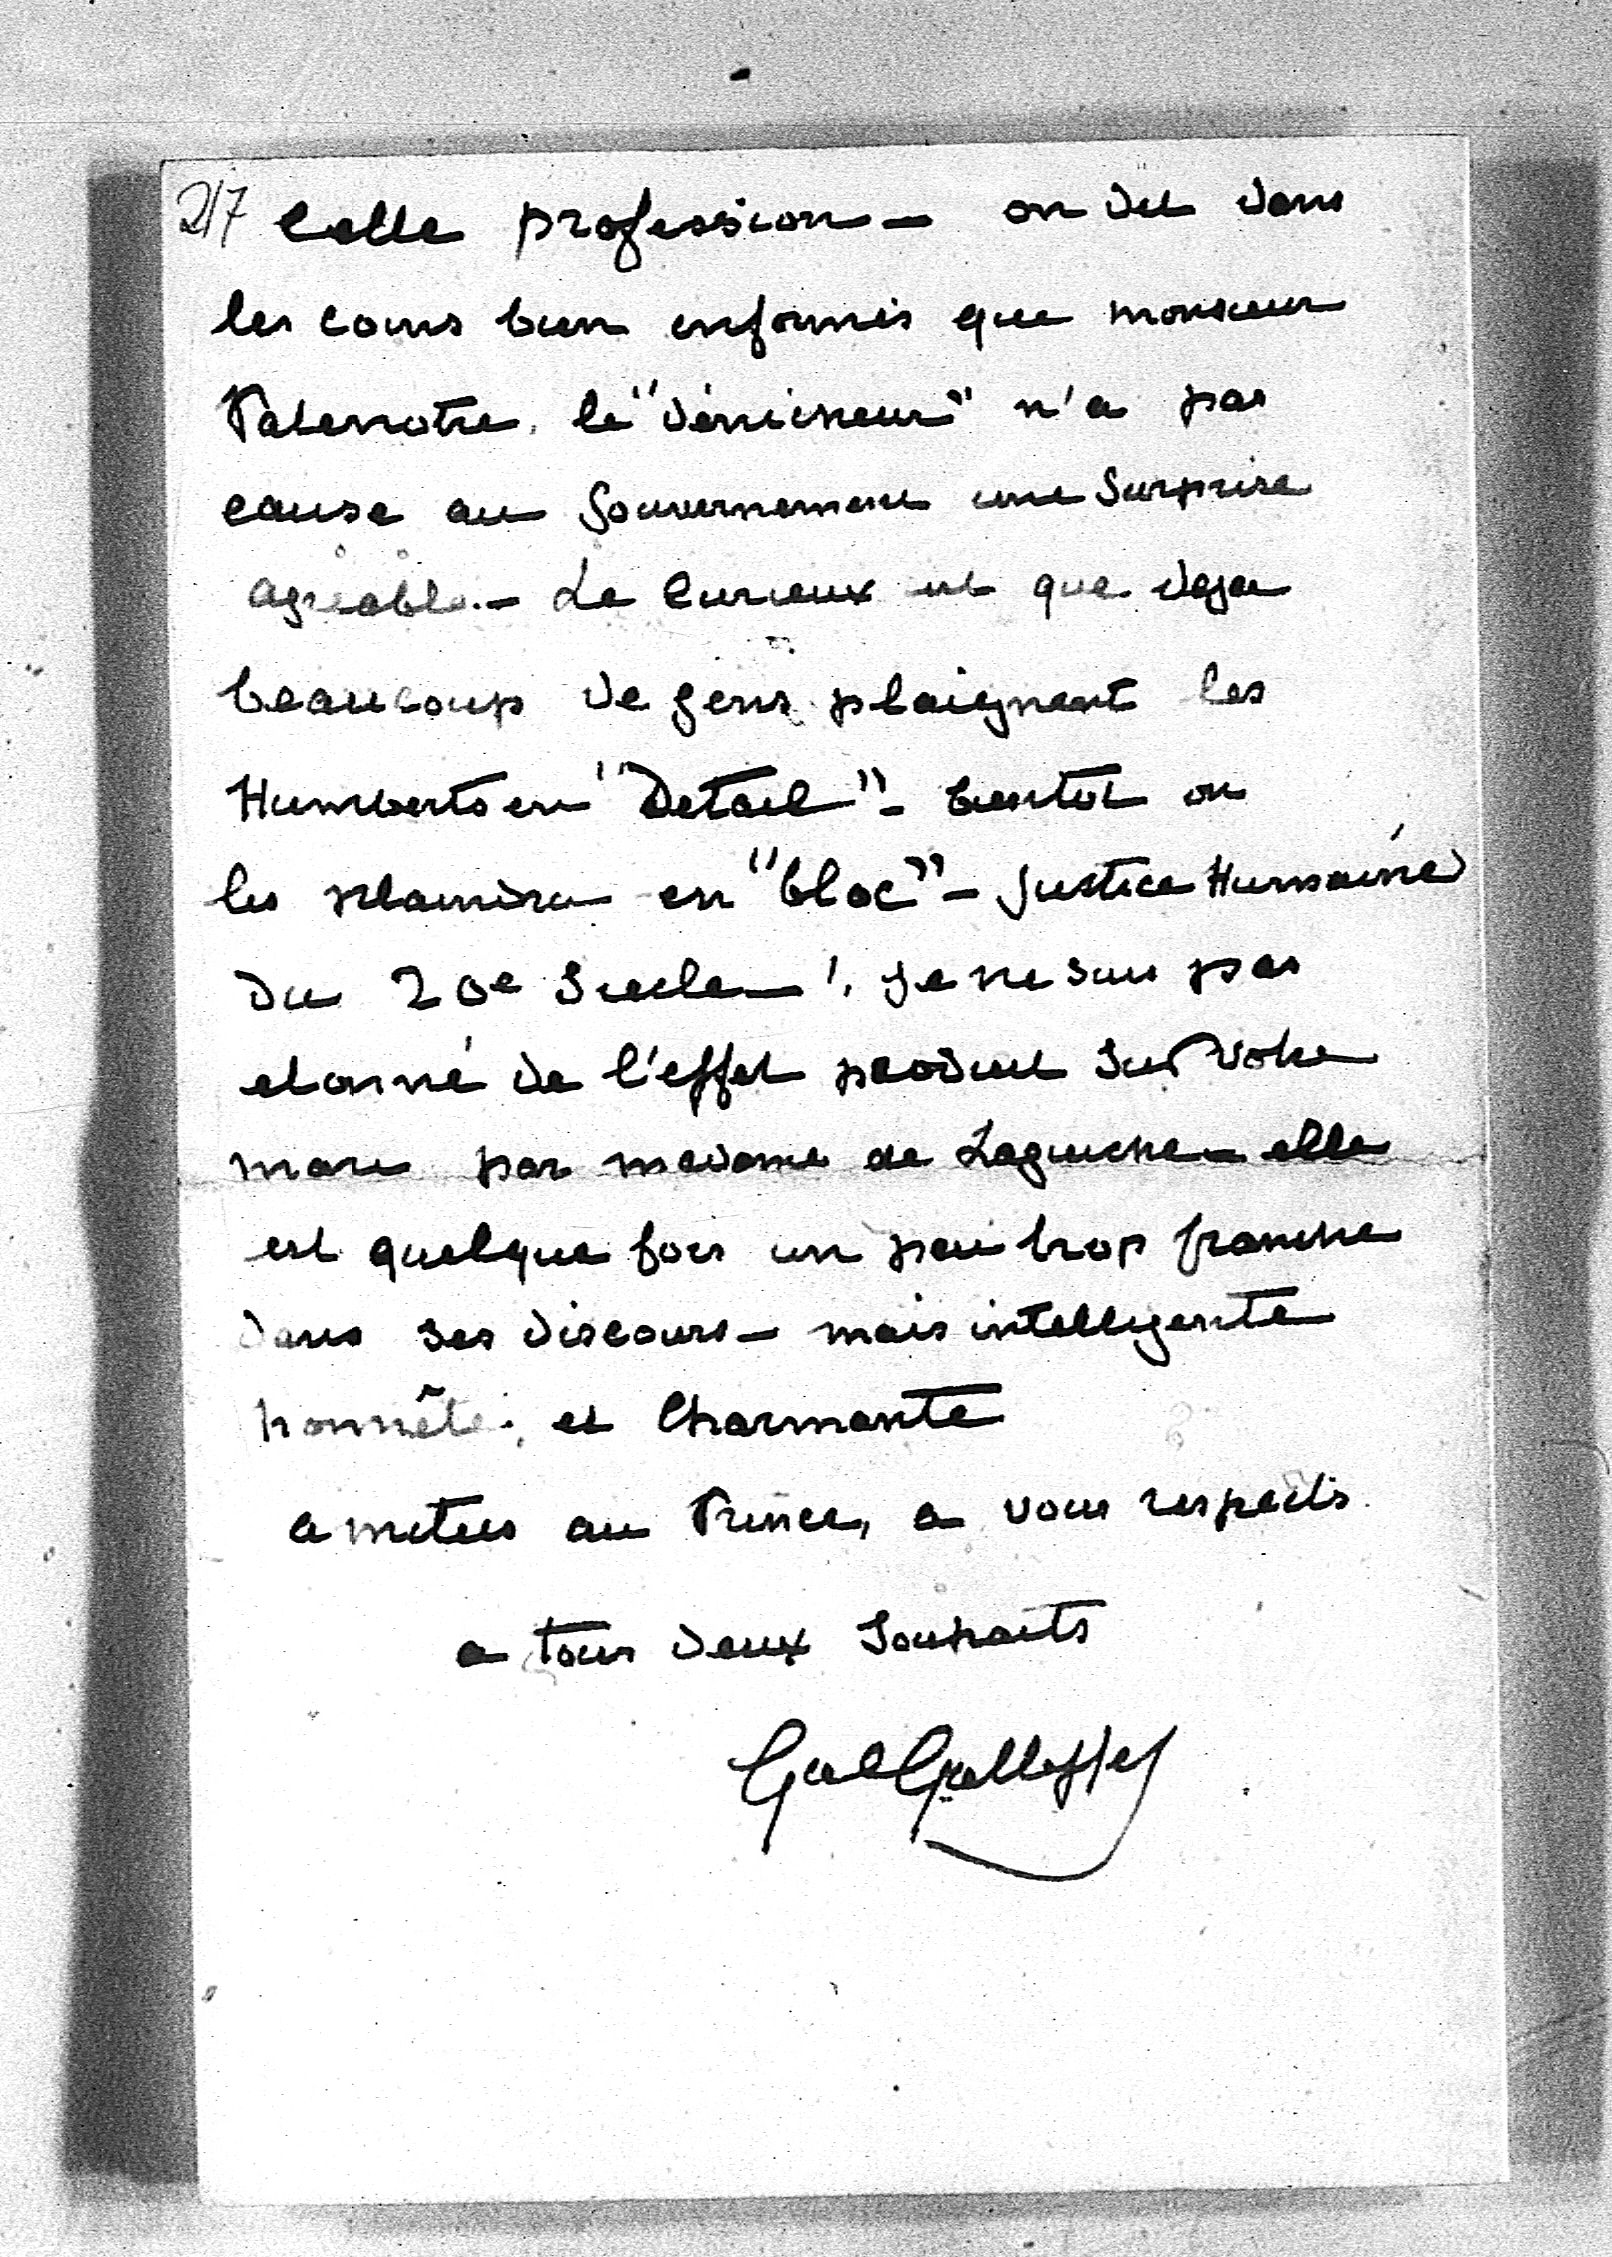 217 Cette profession – on dit dans
les coins bien informés que monsieur
Patenotre, le "dénicheur" n'a pas
cause au Gouvernement une Surprise
agréable. – Le Curieux est que deja
beaucoup de gens plaignent les
Humberts en "Detail" – bientot on
les plaindra en "bloc" – Justice Humaine
du 20e Siecle – ! Je ne suis pas
etonné de l'effet produit sur votre
mari par madame de Laguiche – elle
est quelque fois un peu trop franche
dans ses discours – mais intelligente
honnête, et Charmante
amities au Prince, a vous respects
a tous deux Souhaits
Gal Galliffet